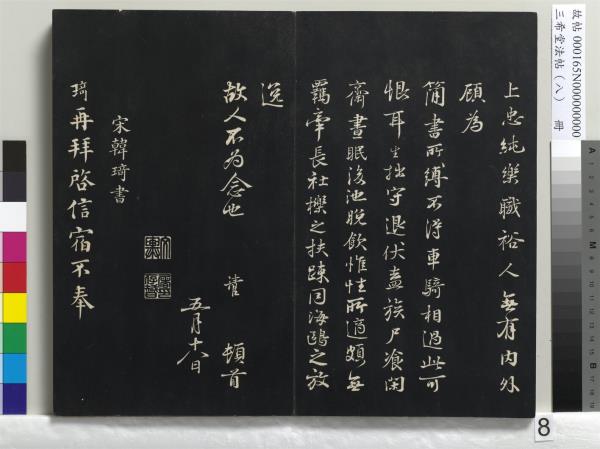 上忠純樂職裕人無有内外
顧為
簡書所縛不得車騎相過此可
恨耳生拙守退伏盍族尸飡閑
齋晝眠後池晚飲惟性所適頗無
羈牽長社櫟之扶踈同海鷗之放
逸
故人不为念也
頓首
五月十八日
宋韓琦書
琦再拜啓信宿不奉
故帖 000165N000000000
三希堂法帖（八） 冊
8